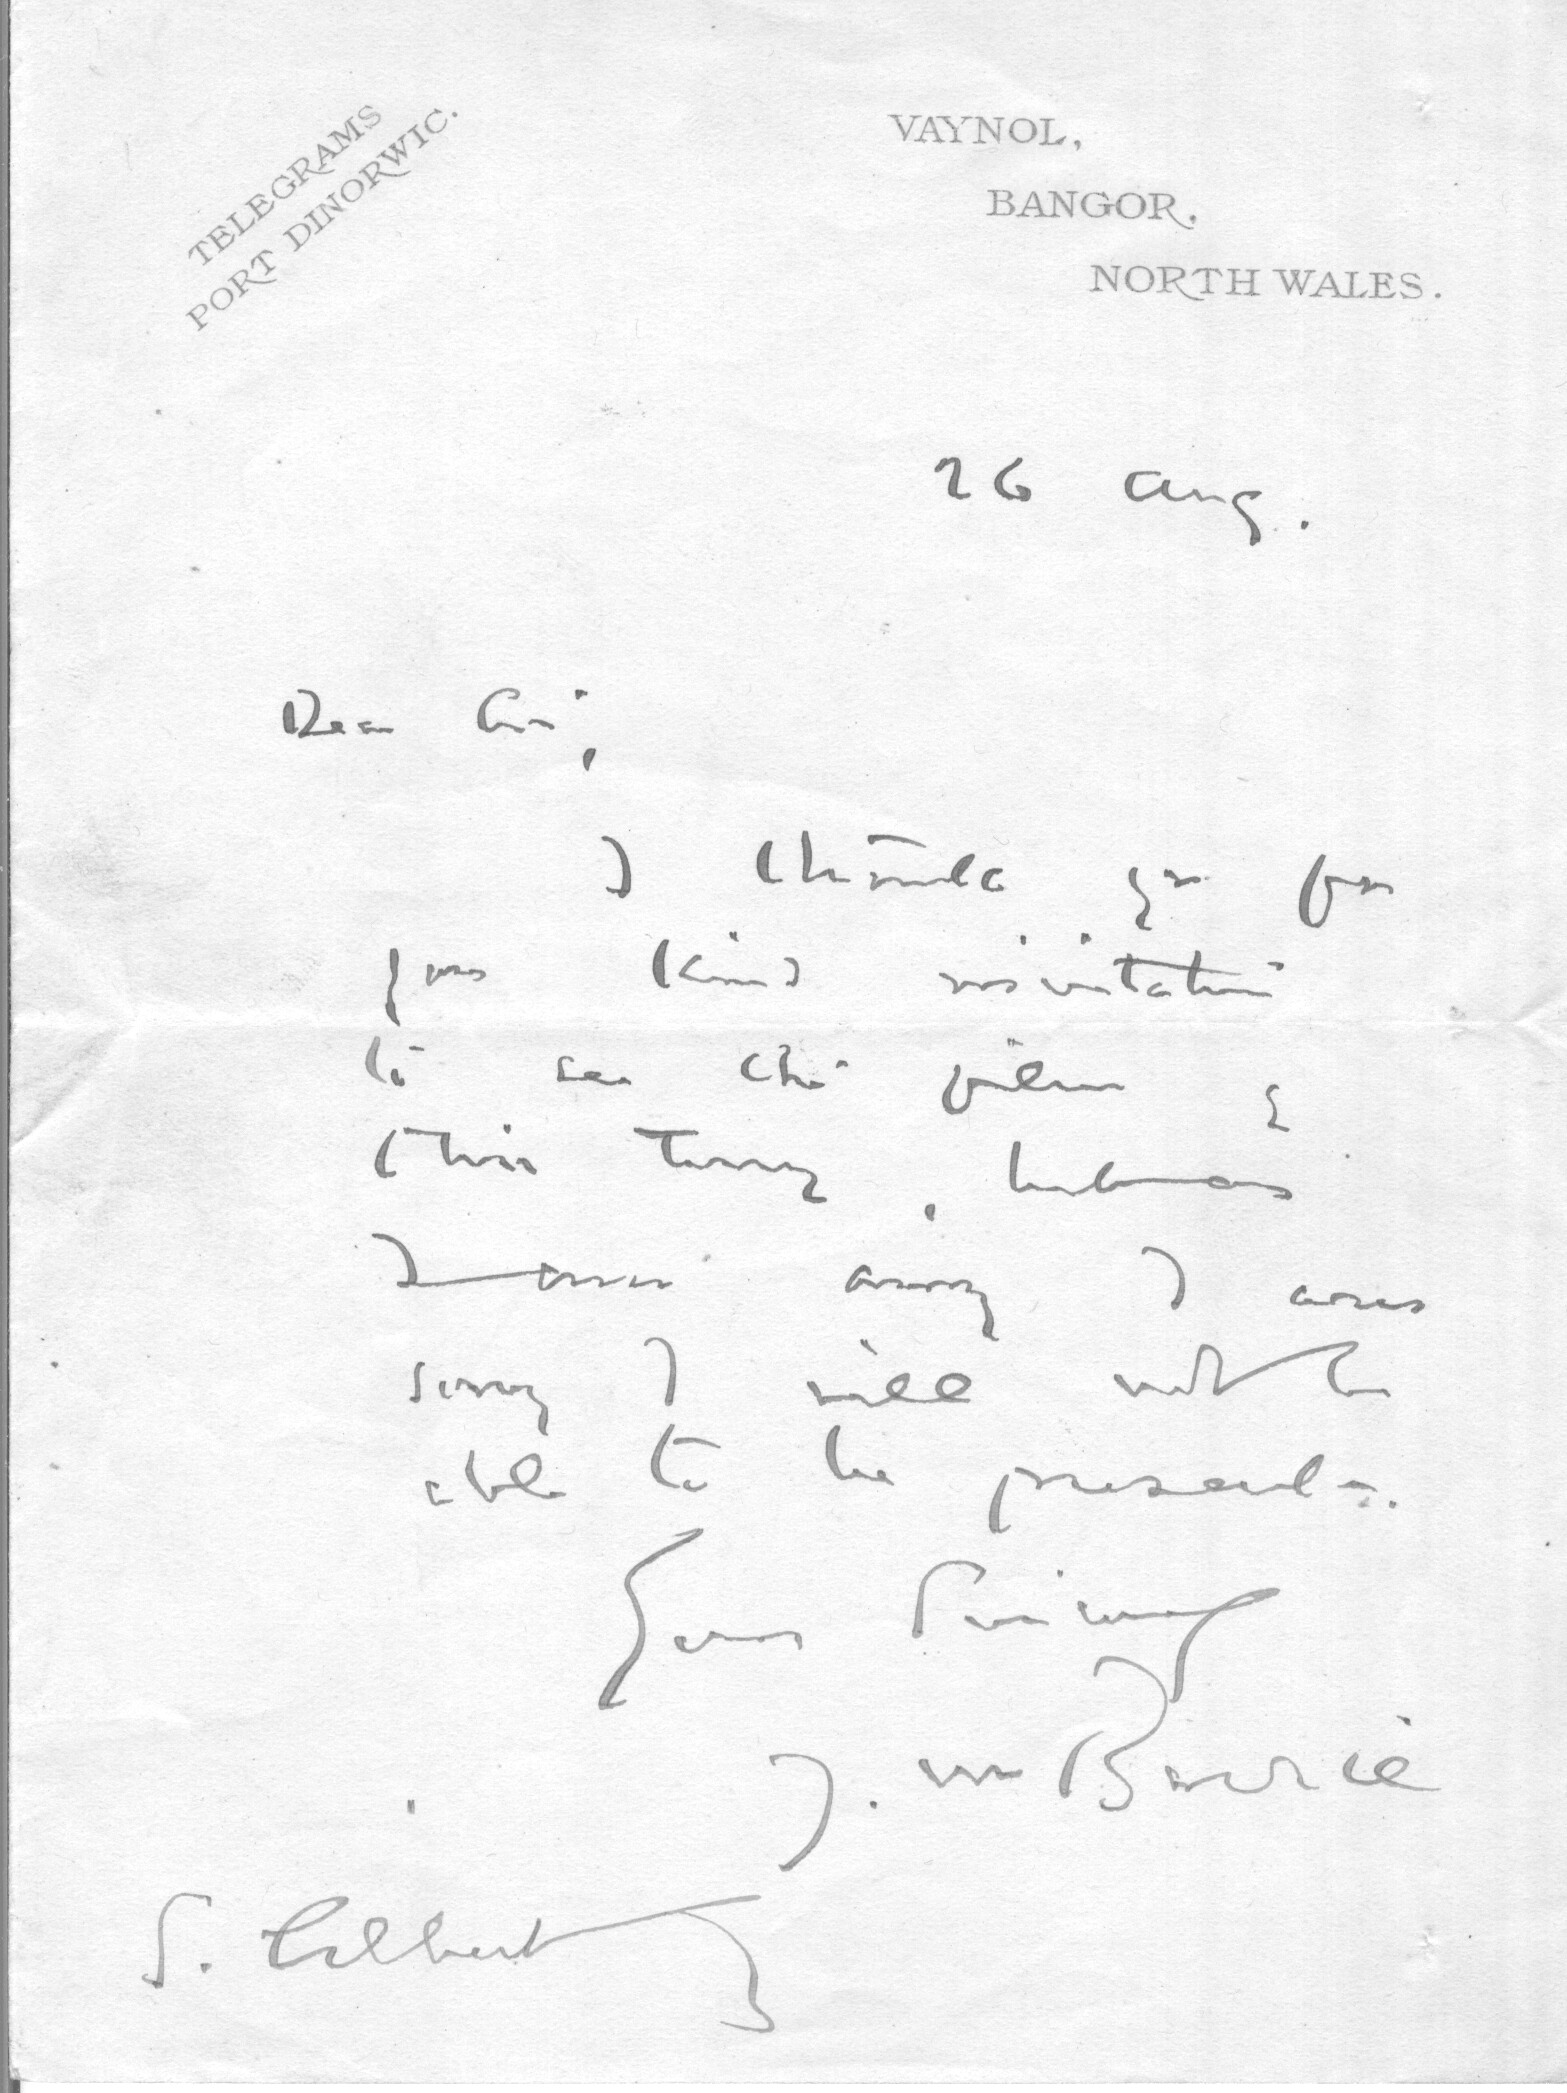 TELEGRAMS
PORT DINORWIC.
VAYNOL,
BANGOR,
NORTH WALES.
26 Aug.
Dear Sir,
I thank you for
your kind invitation
to see the film of
this story, but as
I am away I am
sorry I will not be
able to be present.
Yours Sincerely
J. M Barrie
S. Gilbert